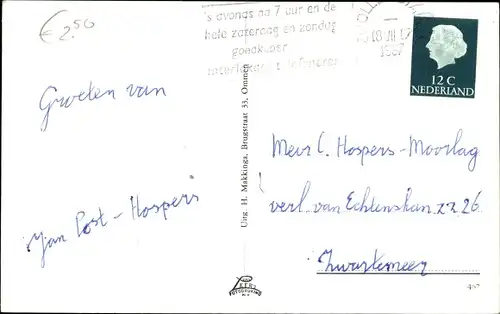 € 2.50
's avonds na 7 uur en de
hele zaterdag en zondag
goedkoper
interlokaal telefoneren
1967
12 C
NEDERLAND
Groeten van
Jan Post-Hospers
Uitg. H. Makkinga, Brugstraat 33, Ommen
Mevr C. Hospers-Moorlag
verl. van Echtenskan zz 26
Zwartemeer
FOTODRUKKING